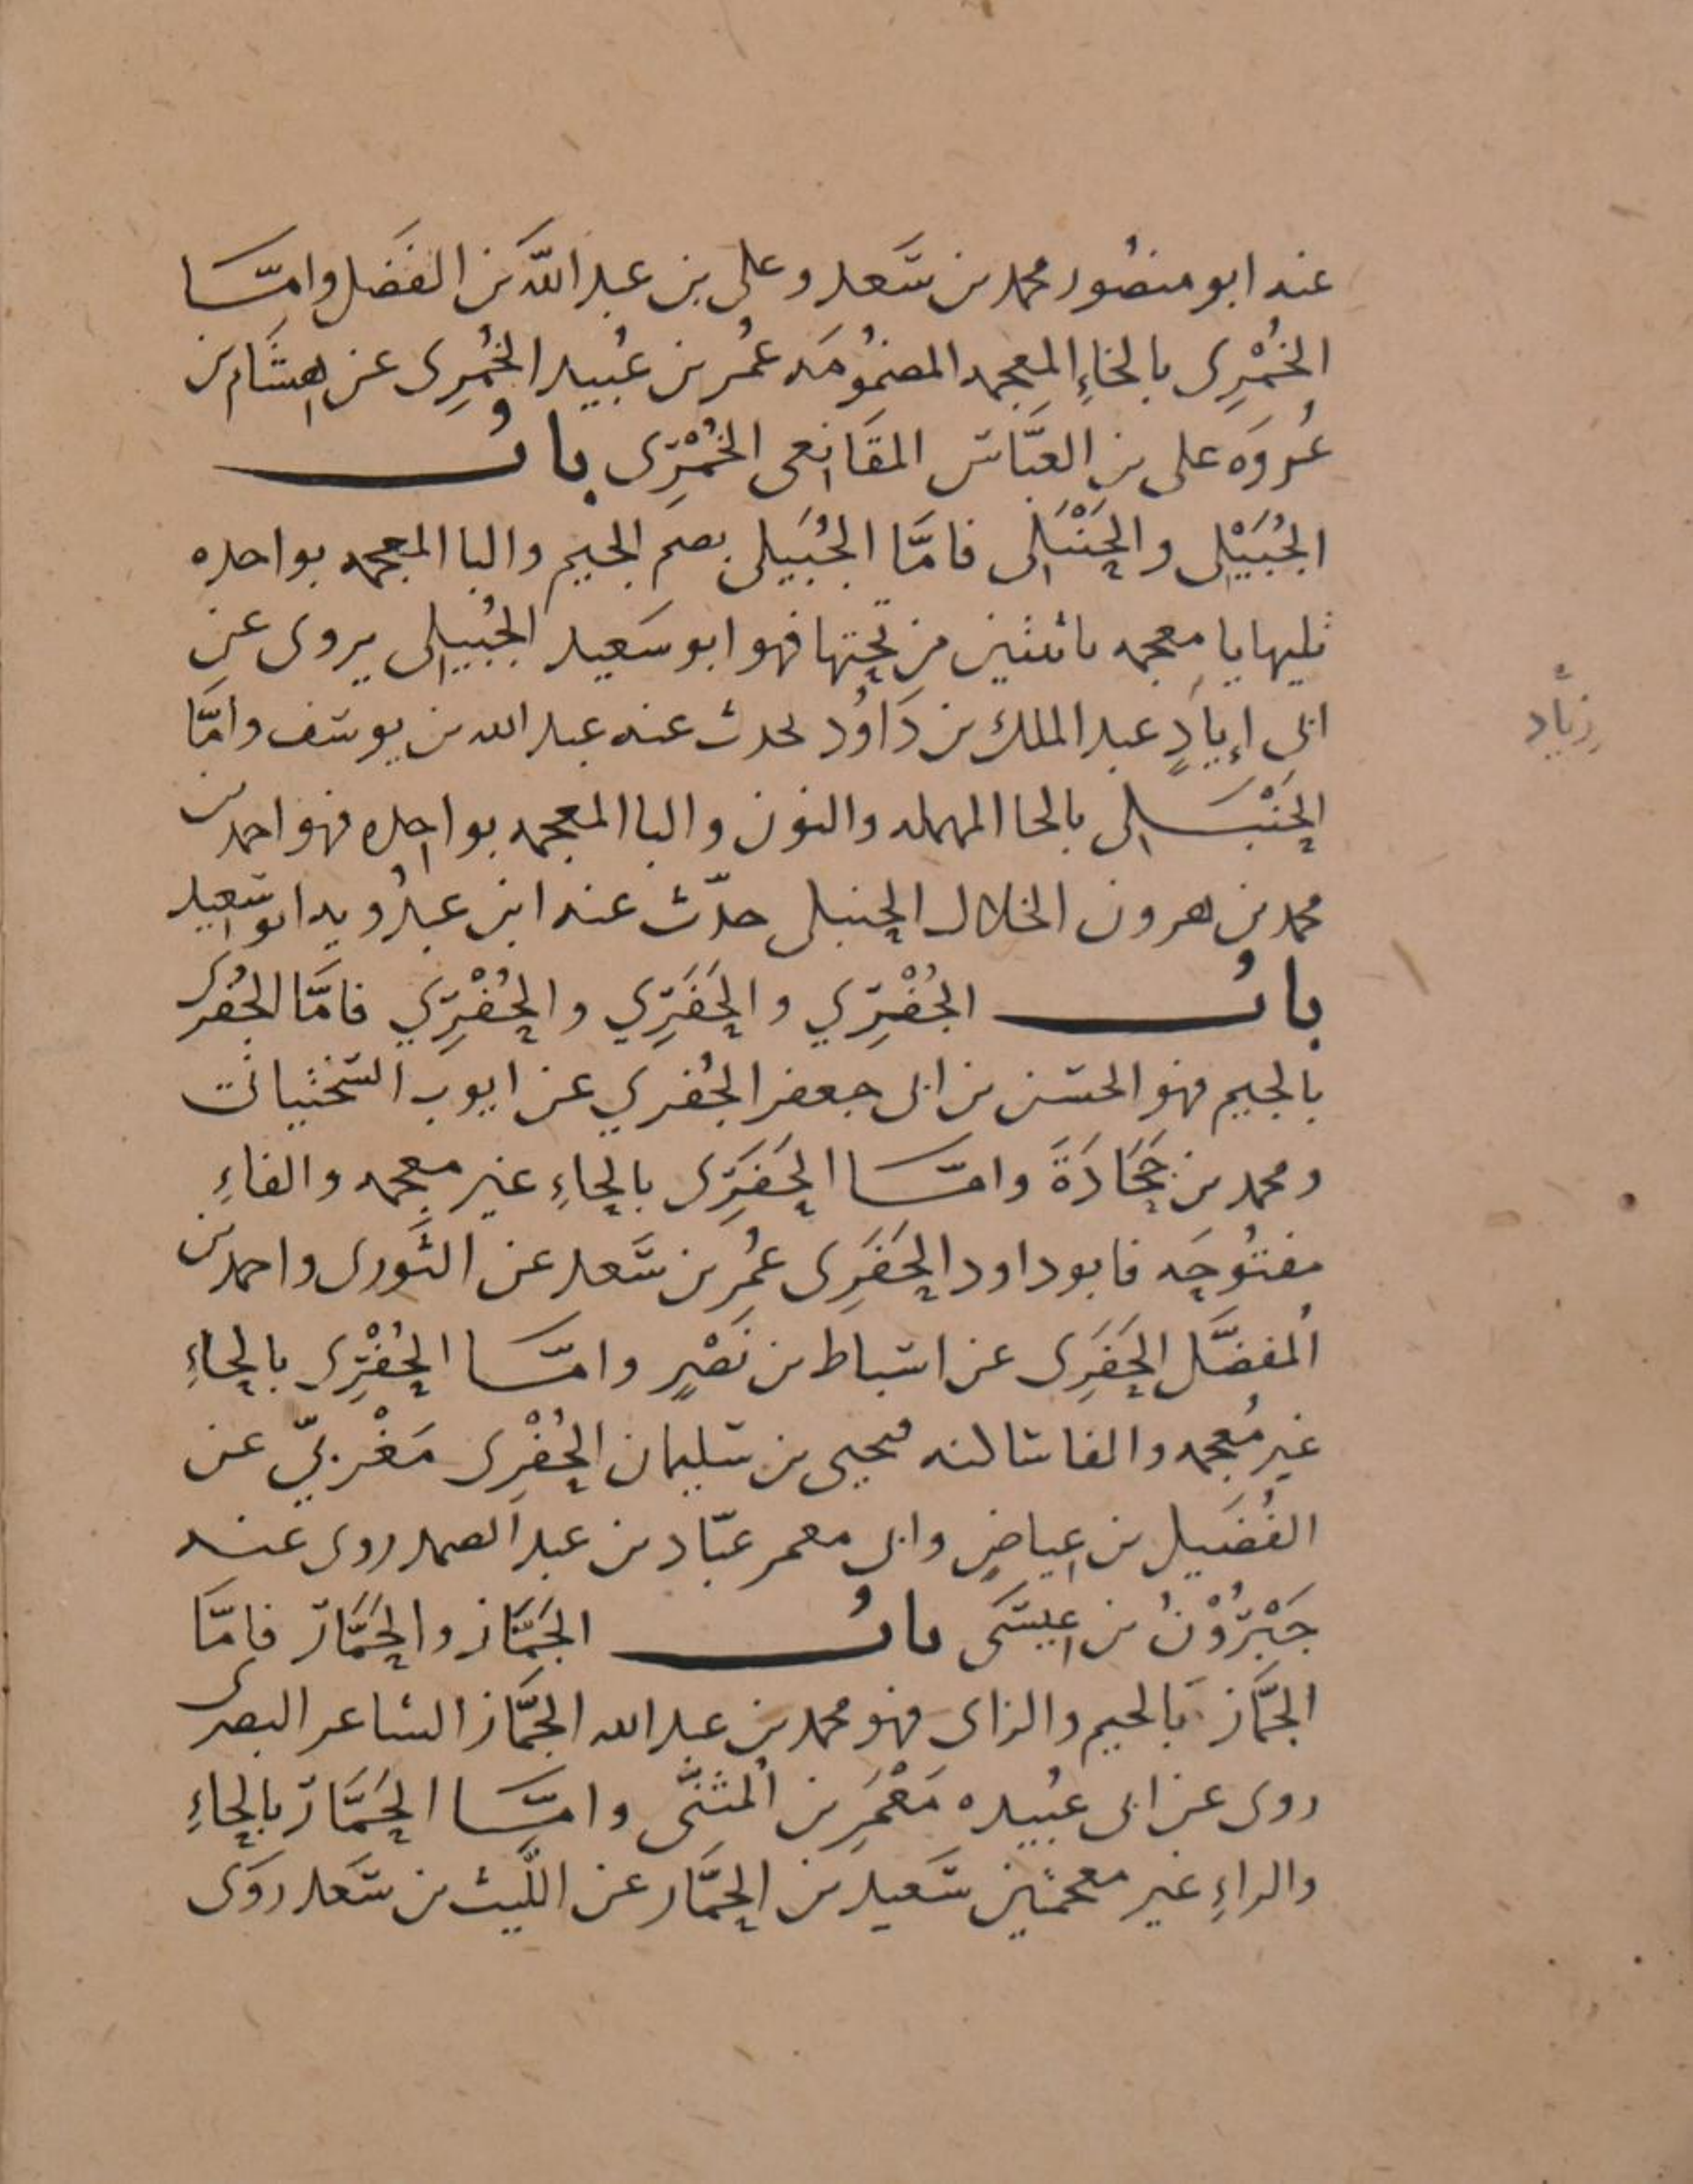 عنه ابو منصُور محمد بن سَعد وعلى بن عبد اللّه بن الفَضل وامّـــا
الخُمْرِى بالخاءِ المعجمه المضمُومَه عمُر بن عُبيد الخُمرِى عن هشَام بن
عُروَه على بن العبّاس المقَانعى الخُمْرِى بابُ
الجُبَيْلى والحَنْبَلى فامَّا الجُبَيلى بضم الجيم والبا المعجمه بواحده
تليها يا معجمه باثنتين من تحتها فهو ابو سَعيد الجُبيلى يروى عن
ابى إيادٍ عبد الملك بن دَاوُد يحدث عنه عبد الله بن يوسف وامَّا
الحَنْبَـــلى بالحا المهمله والنون والبا المعجمه بواحده فهو احمد بن
محمد بن هرون الخلال الحنبلى حدّث عنه ابن عبدُويه ابو سَعيد
بابُ الجُفْرِي والحَفَرِي والحُفْرِي فامَّا الجُفرى
بالجيم فهو الحسن بن ابى جعفر الجُفري عن ايوب السَختيانى
ومحمد بن جُحَادَةَ وامّـــا الحَفَرِى بالحاءِ غير معجمه والفاءِ
مفتوُحَه فابو داود الحَفَرِى عمُر بن سَعد عن الثَورى واحمد بن
المُفضَّل الحَفَرِى عن اسباط بن نَصْرٍ وامّـــا الحُفْرِى بالحاءِ
غير مُعجمه والفا ساكنه فيحيى بن سليمان الحُفْرِى مَغْربيّ عن
الفُضَيل بن عياضٍ وابى معمر عبّاد بن عبد الصمد روى عنه
جَبْرُوْنُ بن عيسَى بابُ الجَمَّاز والحَمَّار فامَّا
الجَمَّاز بالجيم والزاى فهو محمد بن عبد الله الجَمَّاز الشاعر البصرى
روى عن ابى عُبيده مَعْمَرِ بن المُثنَّى وامّـــا الحَمَّار بالحاءِ
والراءِ غير معجمتين سَعيد بن الحَمَّار عن اللَّيث بن سَعد روَى
زِيَاد